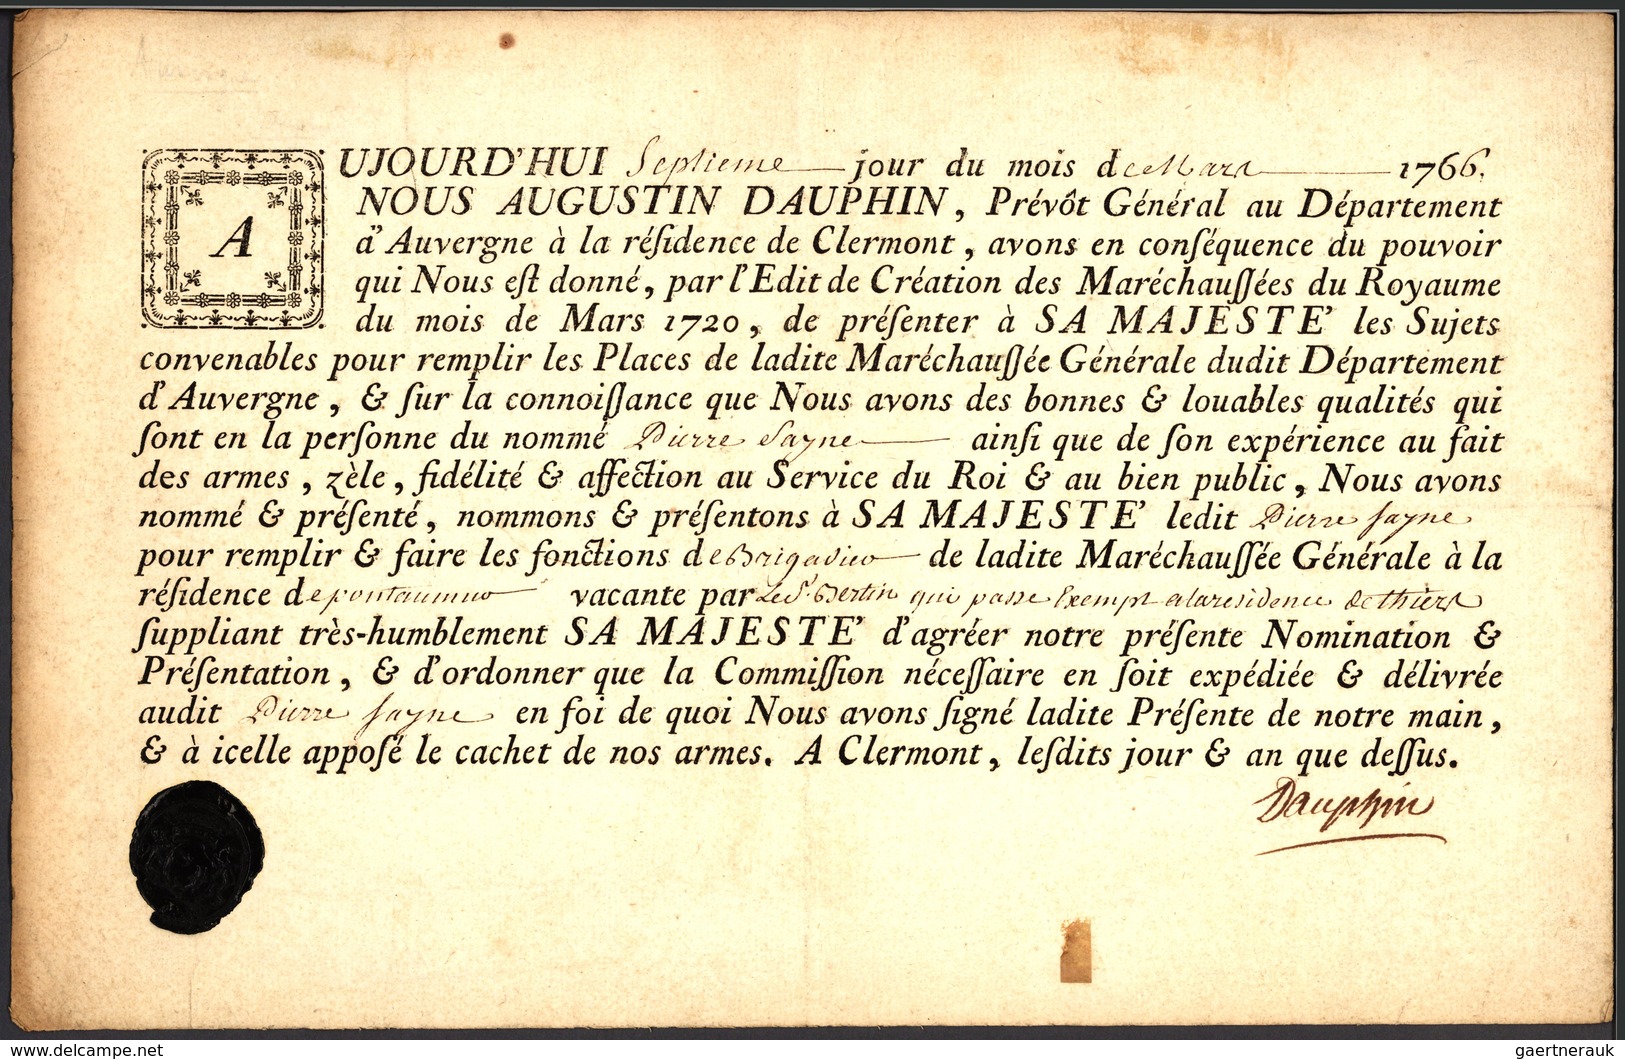 AUJOURD'HUI Septieme jour du mois de Mars 1766.
NOUS AUGUSTIN DAUPHIN, Prévôt Général au Département
d'Auvergne à la réſidence de Clermont, avons en conſéquence du pouvoir
qui Nous eſt donné, par l'Edit de Création des Maréchauſſées du Royaume
du mois de Mars 1720, de préſenter à SA MAJESTE' les Sujets
convenables pour remplir les Places de ladite Maréchauſſée Générale dudit Département
d'Auvergne, & ſur la connoiſſance que Nous avons des bonnes & louables qualités qui
ſont en la perſonne du nommé Pierre Sayne ainſi que de ſon expérience au fait
des armes, zèle, fidélité & affection au Service du Roi & au bien public, Nous avons
nommé & préſenté, nommons & préſentons à SA MAJESTE' ledit Pierre Sayne
pour remplir & faire les fonctions de Brigadier de ladite Maréchauſſée Générale à la
réſidence de pontaumur vacante par Le Sr. Bertin qui passe Exempt a la residence de thiers
ſuppliant très-humblement SA MAJESTE' d'agréer notre préſente Nomination &
Préſentation, & d'ordonner que la Commiſſion néceſſaire en ſoit expédiée & délivrée
audit Pierre Sayne en foi de quoi Nous avons ſigné ladite Préſente de notre main,
& à icelle appoſé le cachet de nos armes. A Clermont, leſdits jour & an que deſſus.
Dauphin
www.delcampe.net
gaertnerauk